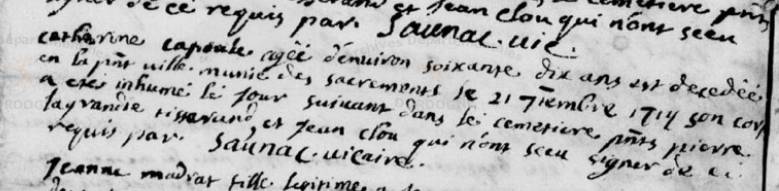 cemetiere pnts
signer de ce requis par. et Jean Clou qui n'ont sceu
Saunac. vic.
catherine capoule agée d'environ soixante dix ans est decedée
en la pnt ville. munie des sacrements le 21 7iembre 1714 son corps
a eté inhumé le jour suivant dans le cemetiere pnts pierre
lagrandie tisserand, et Jean Clou qui n'ont sceu signer de ce
requis par. Saunac. vicaire.
Jeanne madrat fille legitime a